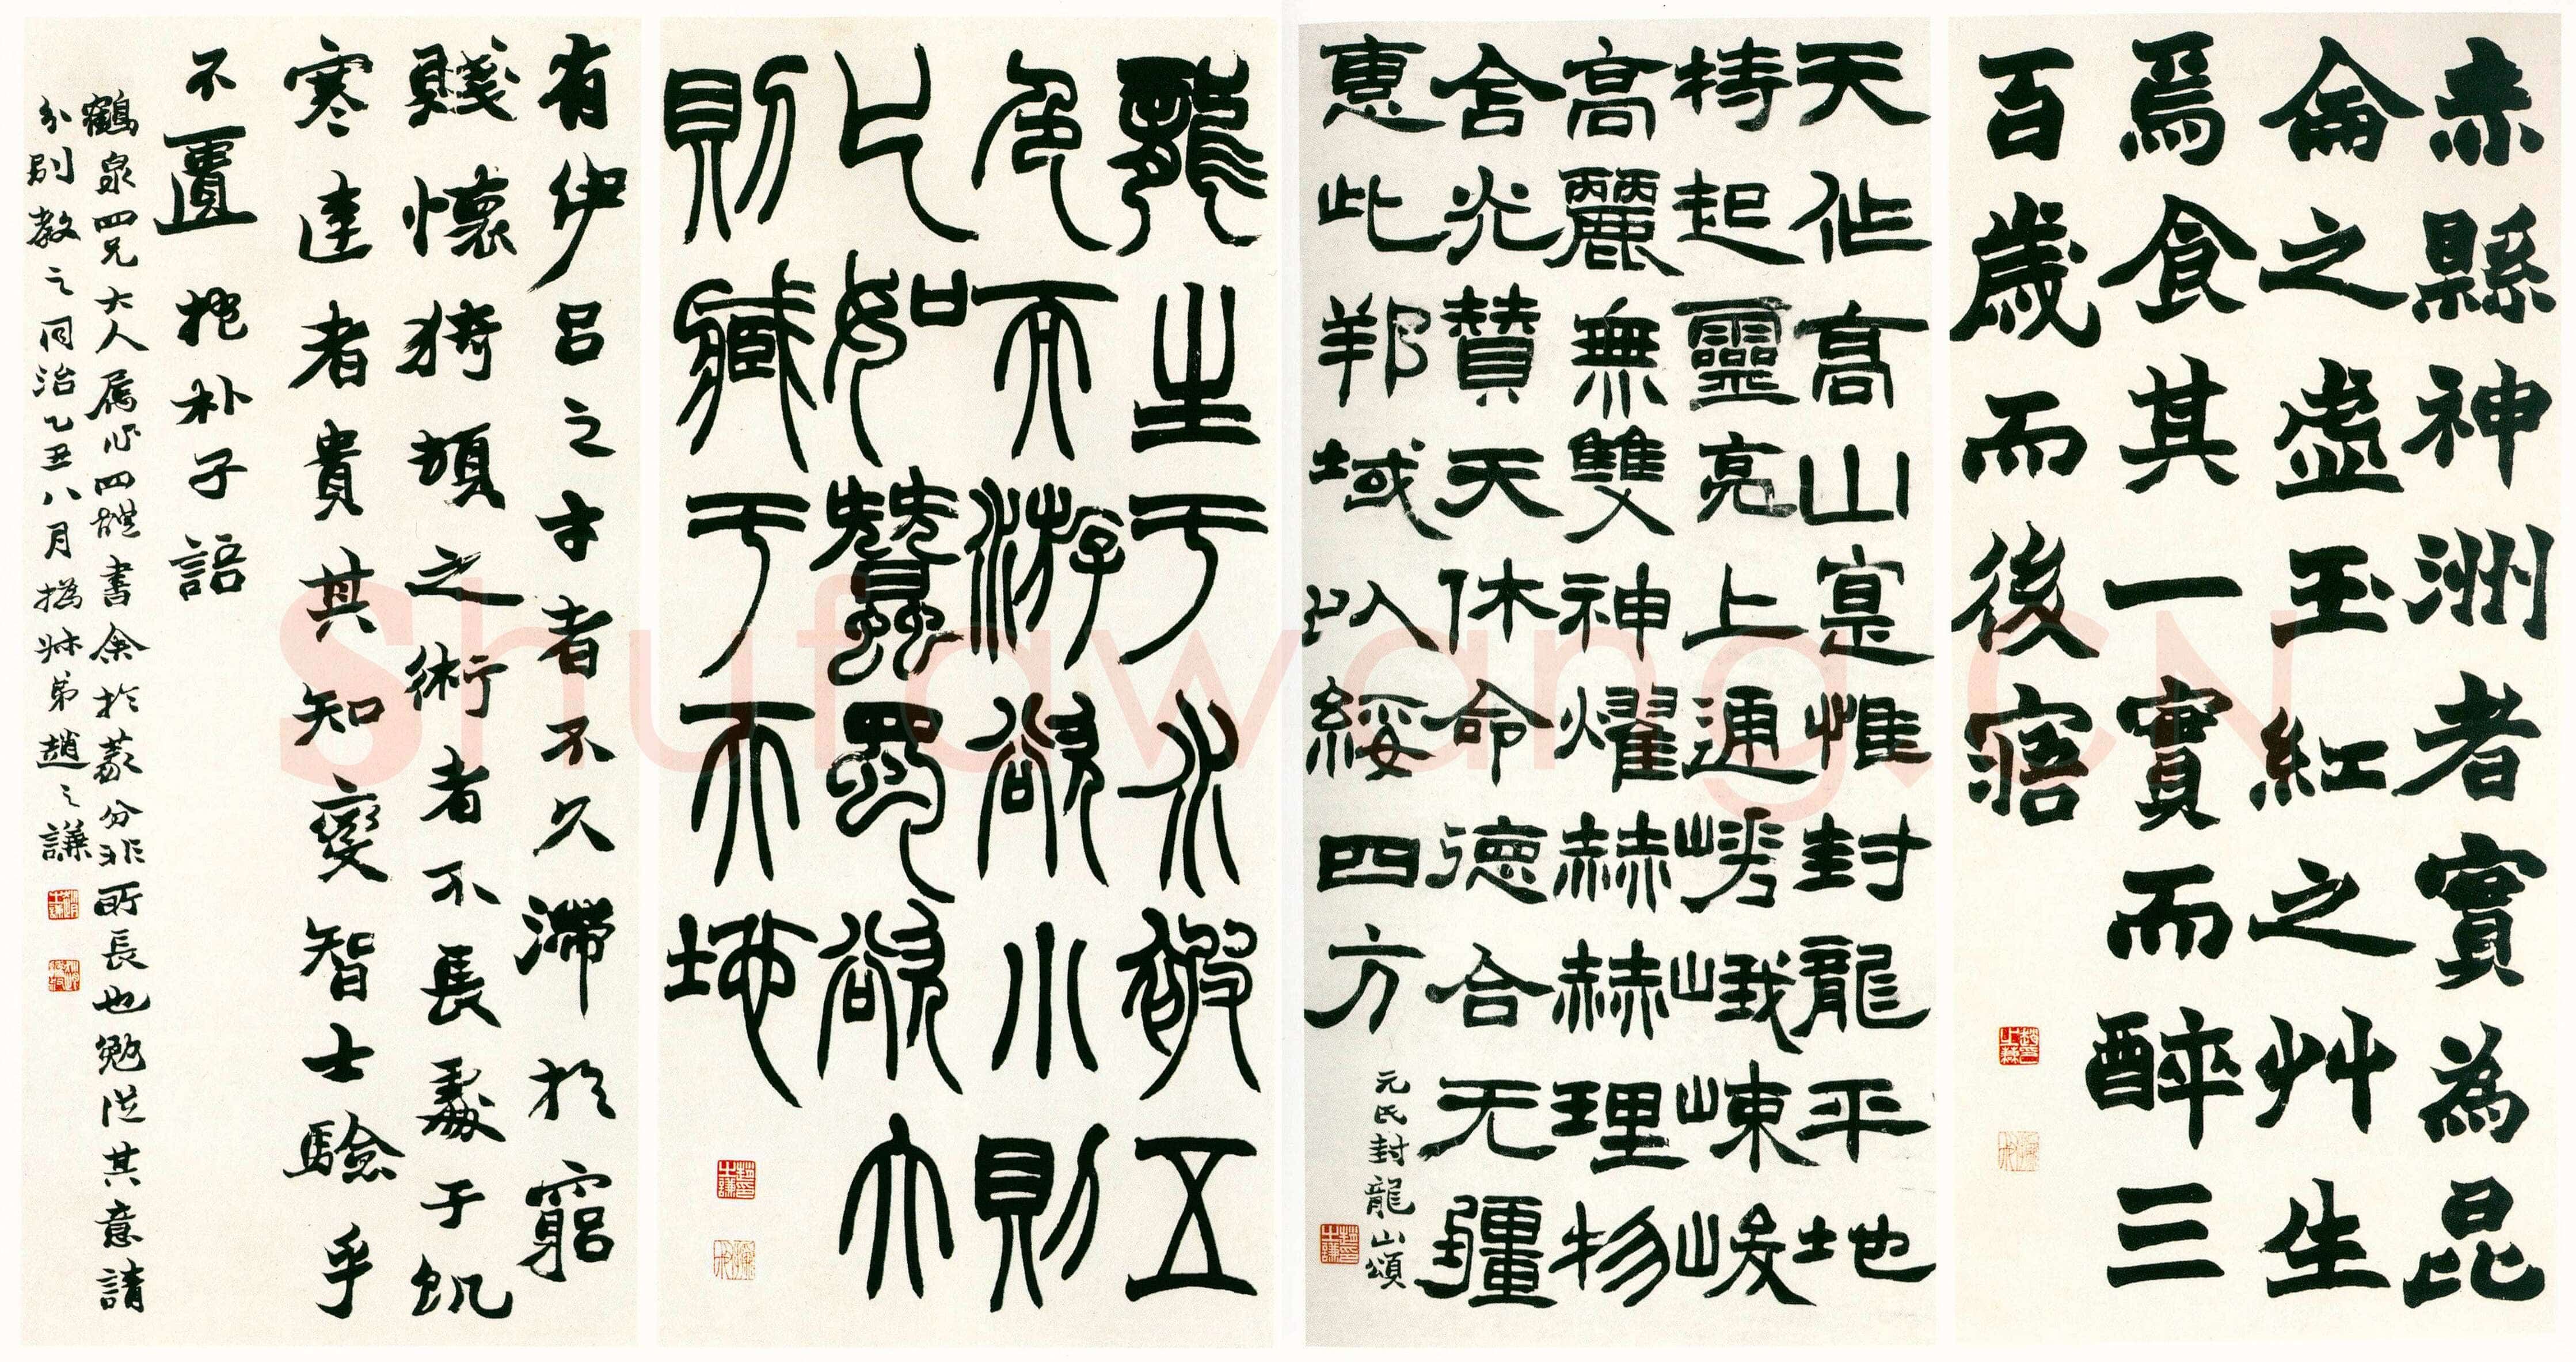 赤縣神洲者實為昆
侖之虛玉紅之艸生
焉食其一實而醉三
百歲而後寤
天作高山寔惟封龍平地
特起靈亮上通嵯峨崠峻
高麗無雙神燿赫赫理物
含光贊天休命德合无疆
惠此邦域以綏四方
元氏封龍山頌
龍生于水被五
色而游欲小則
化如蠶蠋欲大
則藏于天地
有伊呂之才者不久滯於窮
賤懷猗頓之術者不長處于飢
寒達者貴其知變智士驗乎
不匱抱朴子語
鶴泉四兄大人屬作四體書余於篆分非所長也勉從其意請
分別教之同治乙丑八月撝叔弟趙之謙
Shufawang.CN